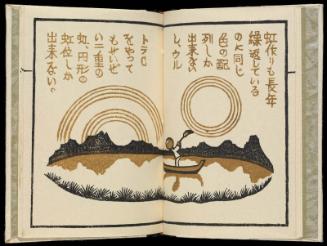 虹作りも長年
繰返している
のに同じ
色の配
列しか
出来ない
し、ウル
トラC
をやって
もせいぜ
い二重の
虹、円形の
虹位しか
出来ない。